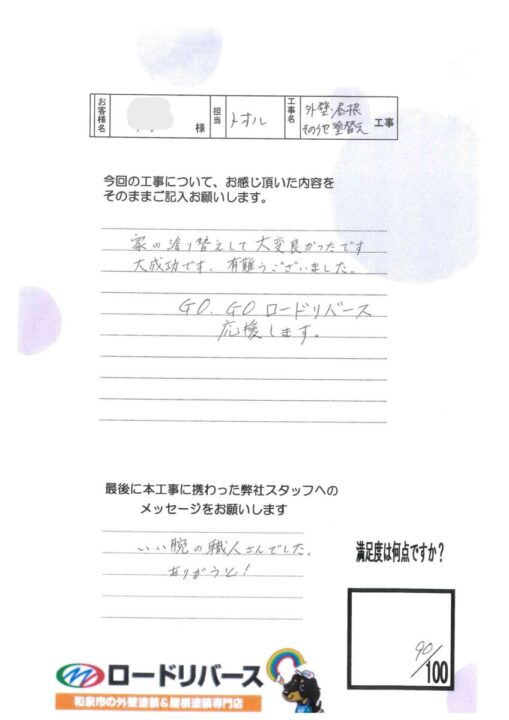 お客様名 様 担当 トオル 工事名 外壁・屋根 その他塗替え 工事
今回の工事について、お感じ頂いた内容を
そのままご記入お願いします。
家の塗り替えして大変良かったです
大成功です、有難うございました。
GO.GOロードリバース
応援します。
最後に本工事に携わった弊社スタッフへの
メッセージをお願いします
いい腕の職人さんでした。
ありがうと!
満足度は何点ですか?
90/100
ロードリバース
和泉市の外壁塗装&屋根塗装専門店